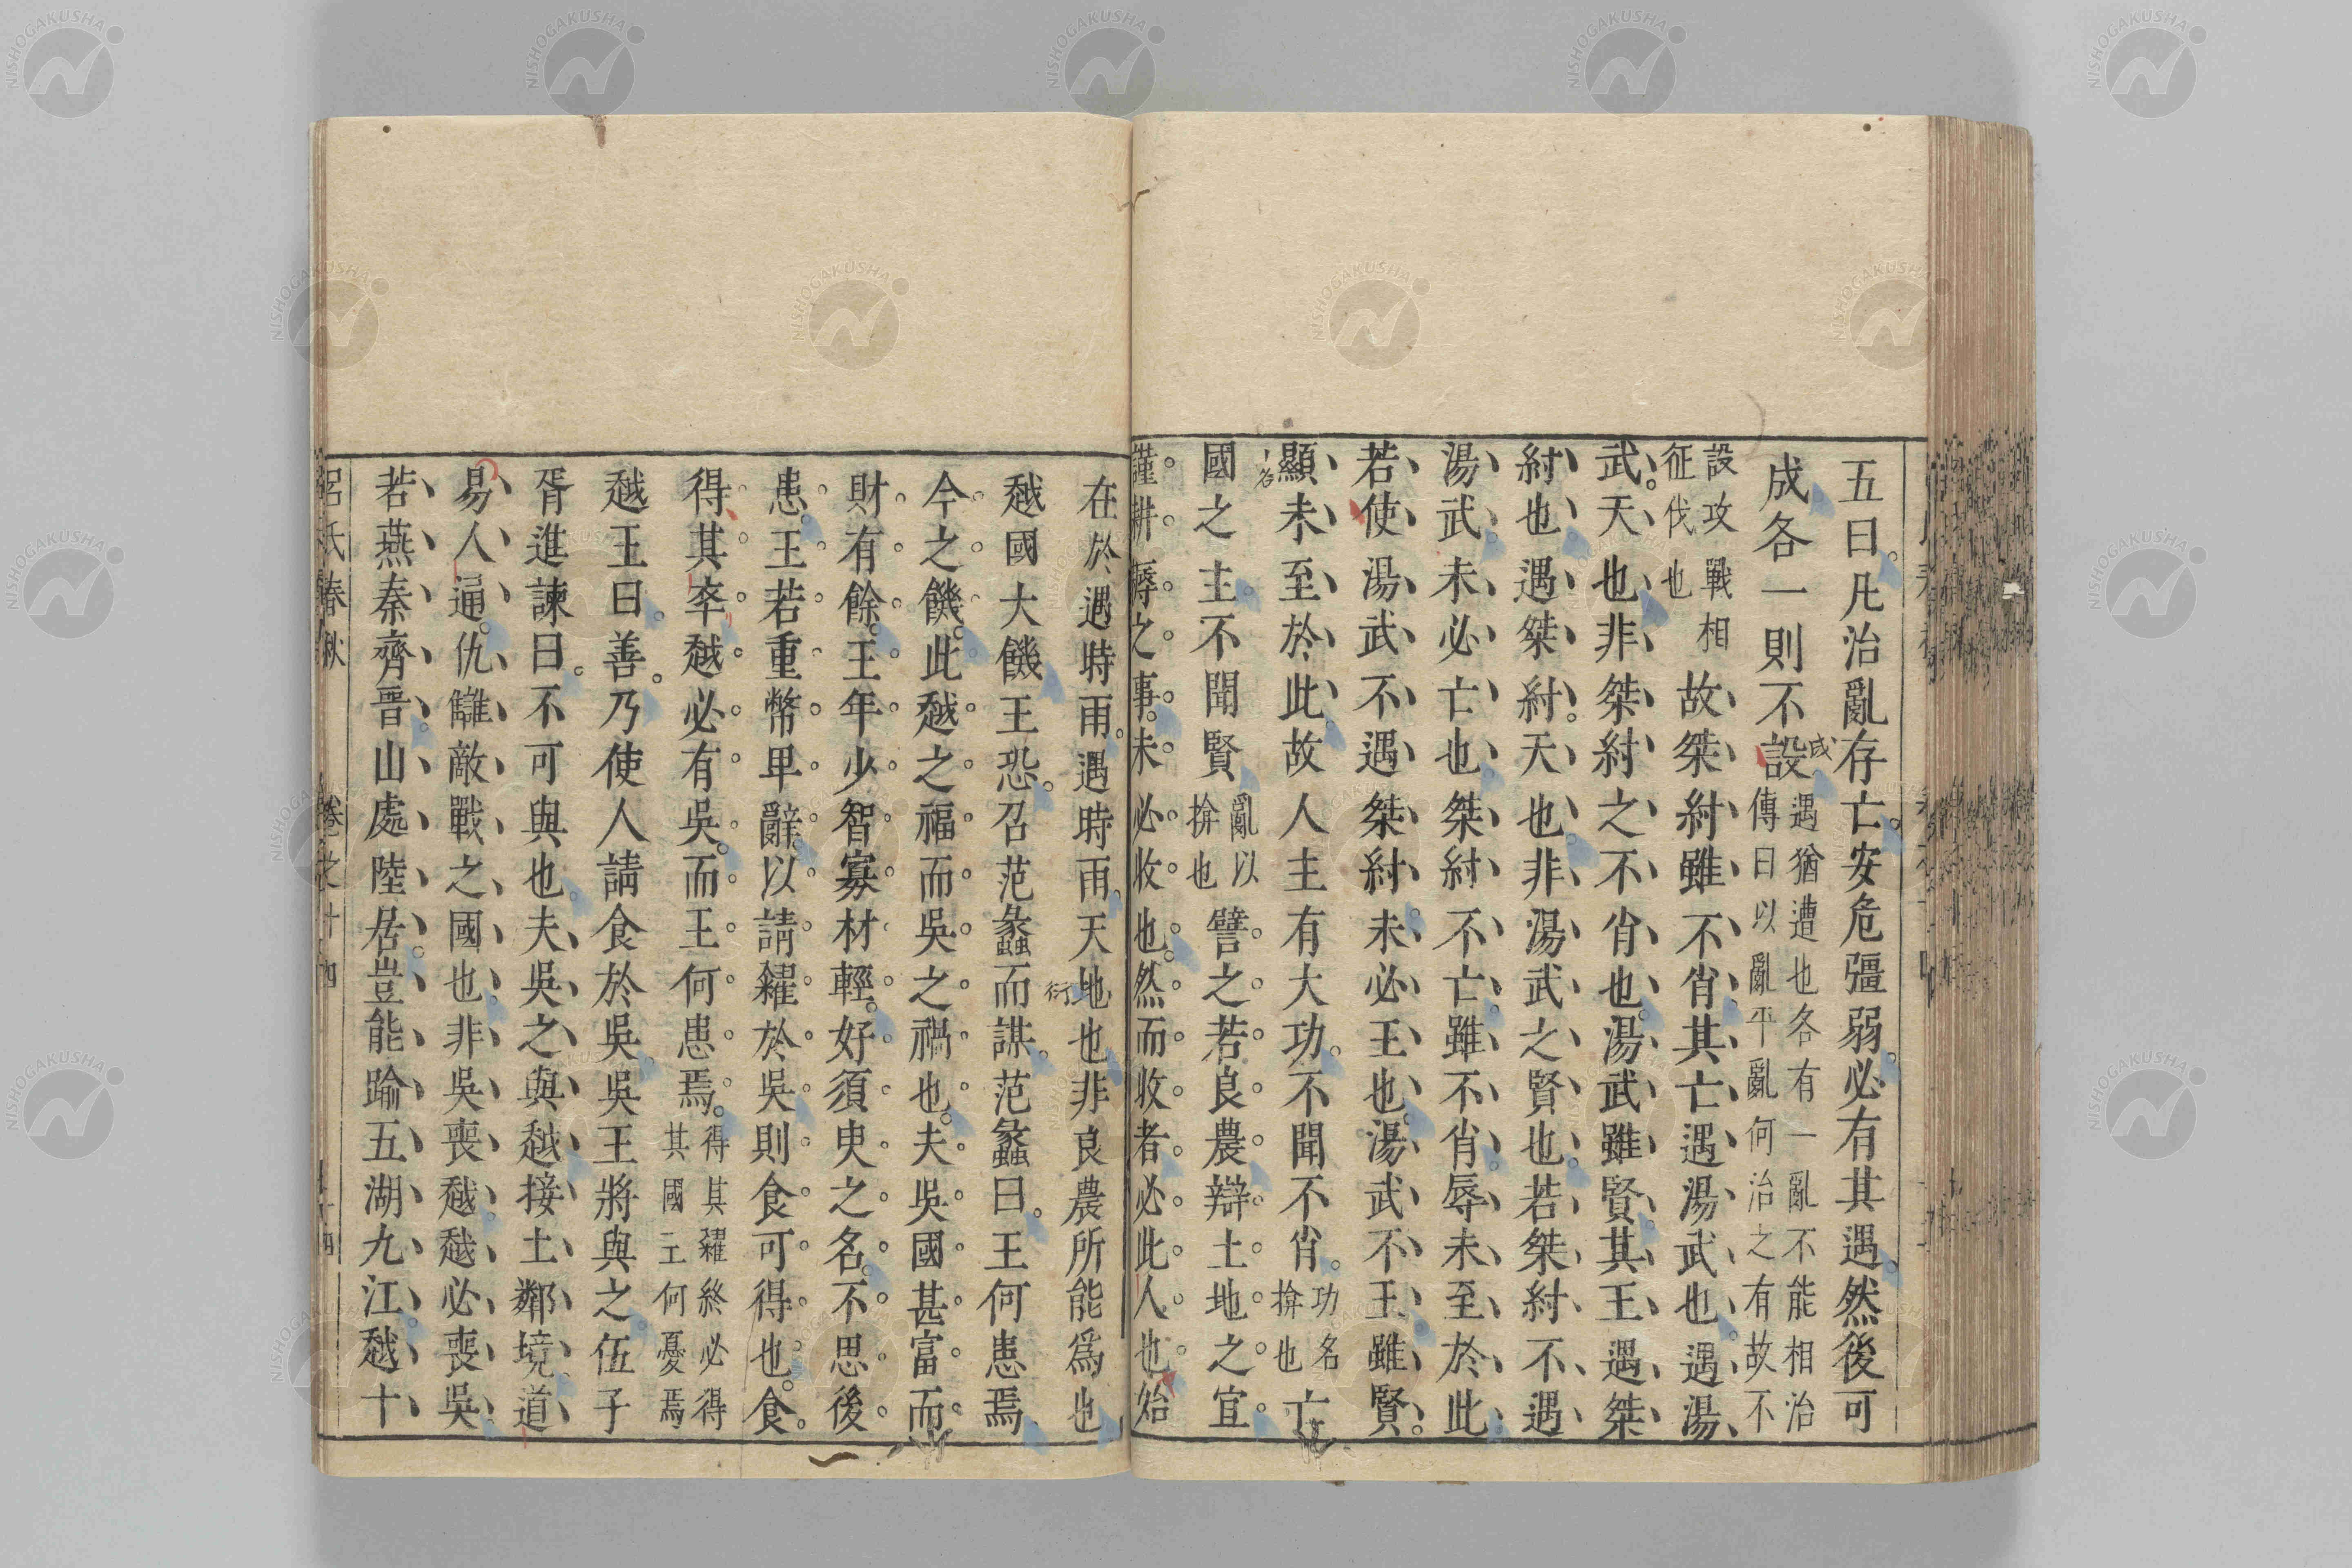 五曰凡治亂存亡安危彊弱必有其遇然後可
成各一則不設遇猶遭也各有一亂不能相治傳曰以亂平亂何治之有故不
設攻戰相征伐也故桀紂雖不肖其亡遇湯武也遇湯
武天也非桀紂之不肖也湯武雖賢其王遇桀
紂也遇桀紂天也非湯武之賢也若桀紂不遇
湯武未必亡也桀紂不亡雖不肖辱未至於此
若使湯武不遇桀紂未必王也湯武不王雖賢
顯未至於此故人主有大功不聞不肖功名揜也亡
國之主不聞賢亂以揜也譬之若良農辯土地之宜
謹耕耨之事未必收也然而收者必此人也始
在於遇時雨遇時雨天地也非良農所能為也
越國大饑王恐召范蠡而謀范蠡曰王何患焉
今之饑此越之福而吳之禍也夫吳國甚富而
財有餘王年少智寡材輕好須臾之名不思後
患王若重幣卑辭以請糴於吳則食可得也食
得其卒越必有吳而王何患焉得其糴終必得其國王何憂焉
越王曰善乃使人請食於吳吳王將與之伍子
胥進諫曰不可與也夫吳之與越接土鄰境道
易人通仇讎敵戰之國也非吳喪越越必喪吳
若燕秦齊晉山處陸居豈能踰五湖九江越十
呂氏春秋 卷之十四 十四
NISHOGAKUSHA